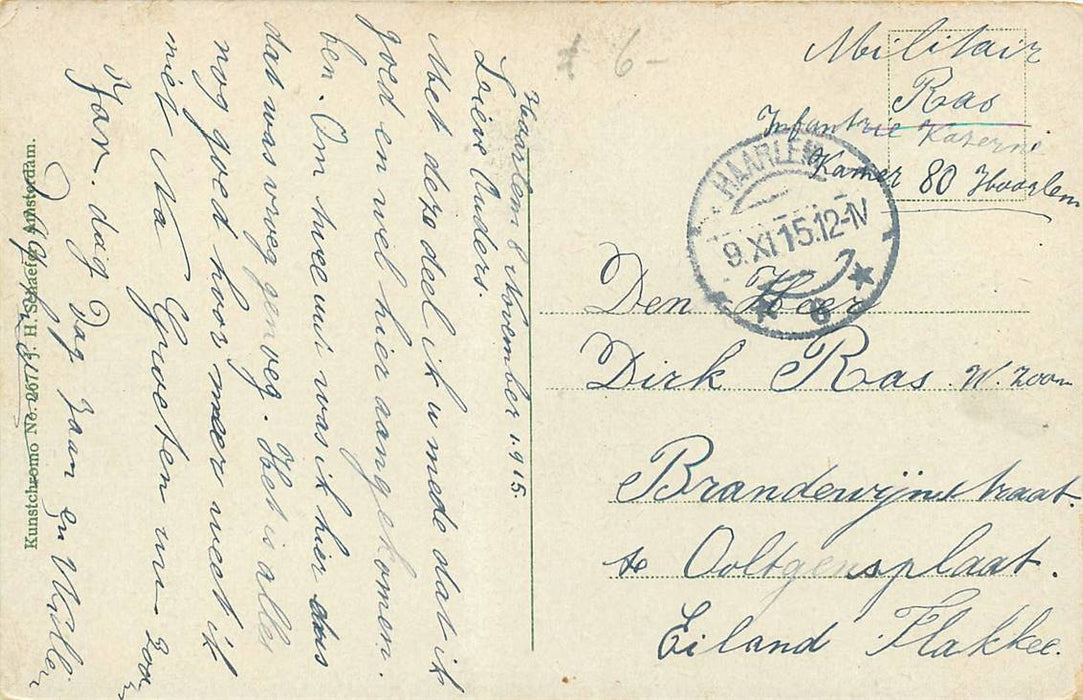 Haarlem 8 November 1.915.
Lieve Ouders.
Met deze deel ik u mede dat ik
goed en wel hier aangekomen.
ben. Om twee uur was ik hier dus
dat was vroeg genoeg. Het is alles
nog goed hoor meer weet ik
niet Na Groeten uw zoon
Jan. dag Dag Jaan en
Kunstchromo No. 267. J. H. Schaefer, Amsterdam.
£ 6-
Militair
Ras
Infantrie Kazerne
Kamer 80 Haarlem
HAARLEM
9.XI.15.12-1V
6
Den Heer
Dirk Ras W. Zoon
Brandewijnstraat.
te Ooltgensplaat.
Eiland Flakkee.